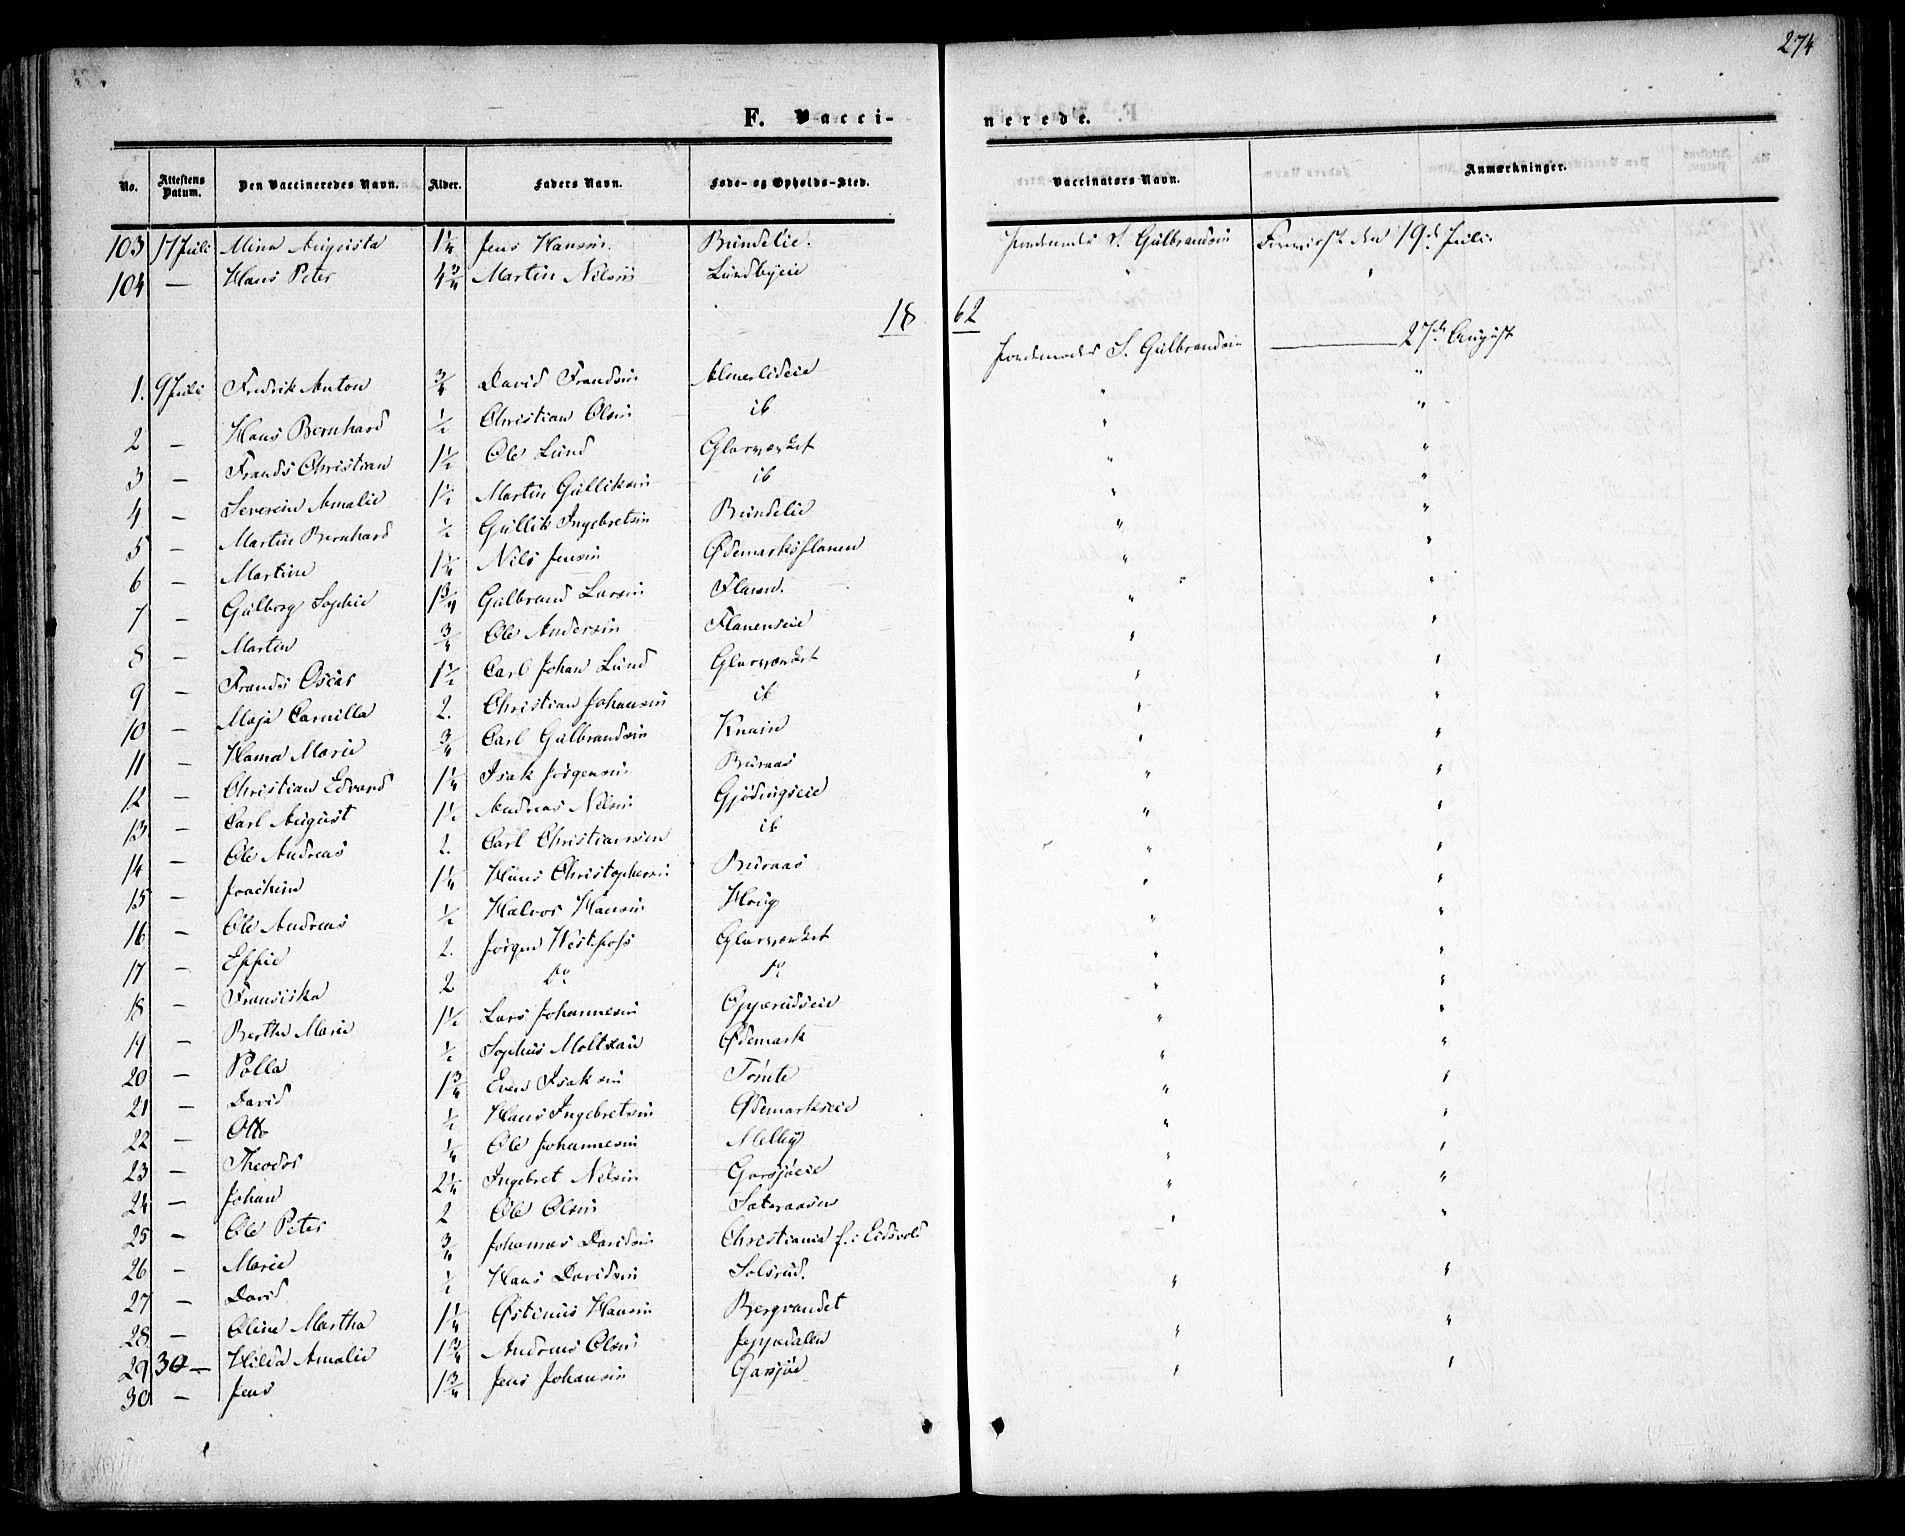 274
F. Vacci- nerede.
No. Attestens Datum. Den Vaccineredes Navn. Alder. Faders Navn. Føde- og Opholds-Sted. Vaccinators Navn. Anmærkninger.
103 17 Juli Mina Augusta 1 1/4 Jens Hansen Bundelie. S. Gulbrandsen 19de Juli
104 — Hans Peter 4 3/4 Martin Nilsen Lundbyeie " "
18 62
1. 9 Juli Fredrik Anton 3/4 David Frandsen Almerlideie S. Gulbrandsen 27de August
2 — Hans Bernhard 1/2 Christian Olsen ib " "
3 — Frands Christian 1 1/2 Ole Lund Glasværket " "
4 — Severein Amalie 1 1/2 Martin Gulliksen ib " "
5 — Martin Bernhard 1/2 Gullik Ingebretsen Bundelie " "
6 — Martine 1 1/4 Nils Jensen Ødemarksflanen " "
7 — Gulborg Sophie 1 3/4 Gulbrand Larsen Flanen. " "
8 — Martin 3/4 Ole Andersen Flanenseie " "
9 — Frands Oscar 1 1/2 Carl Johan Lund Glasværket " "
10 — Maja Camilla 2. Christian Johansen ib " "
11 — Hanna Marie 3/4 Carl Gulbrandsen Knain " "
12 — Christian Edvard 1 1/4 Isak Jørgensen Buraas " "
13 — Carl August 1 1/2 Andreas Nilsen Gjødingseie " "
14 — Ole Andreas 2. Carl Christiansen ib " "
15 — Joachim 1 1/4 Hans Christophersen Buraas " "
16 — Ole Andreas 1/2 Halvor Hansen Houg " "
17 — Effie 2. Jørgen Westfoss Glasværket " "
18 — Fransiska 2 do do " "
19 — Berthe Marie 1 1/2 Lars Johannesen Gjærudseie " "
20 — Polla 1/2 Sophus Moltzau Ødemark " "
21 — David 1 3/4 Even Isaksen Tømte " "
22 — Otto 1/2 Hans Ingebretsen Ødemarkseie " "
23 — Theodor 1/4 Ole Johannesen Melby " "
24 — Johan 2 1/4 Ingebret Nilsen Garsjøeie " "
25 — Ole Peter 2 Ole Olsen Sateraasen " "
26 — Marie 3/4 Johannes Davidsen Christiania f. i Eidsvold
27 — David 1/2 Hans Davidsen Solsrud. " "
28 — Oline Martha 1 1/4 Østinus Hansen Bergvandet " "
29 30 — Hilda Amalie 1 3/4 Andreas Olsen Jeppedalen " "
30 — Jens 1 3/4 Jens Johansen Garsjøe